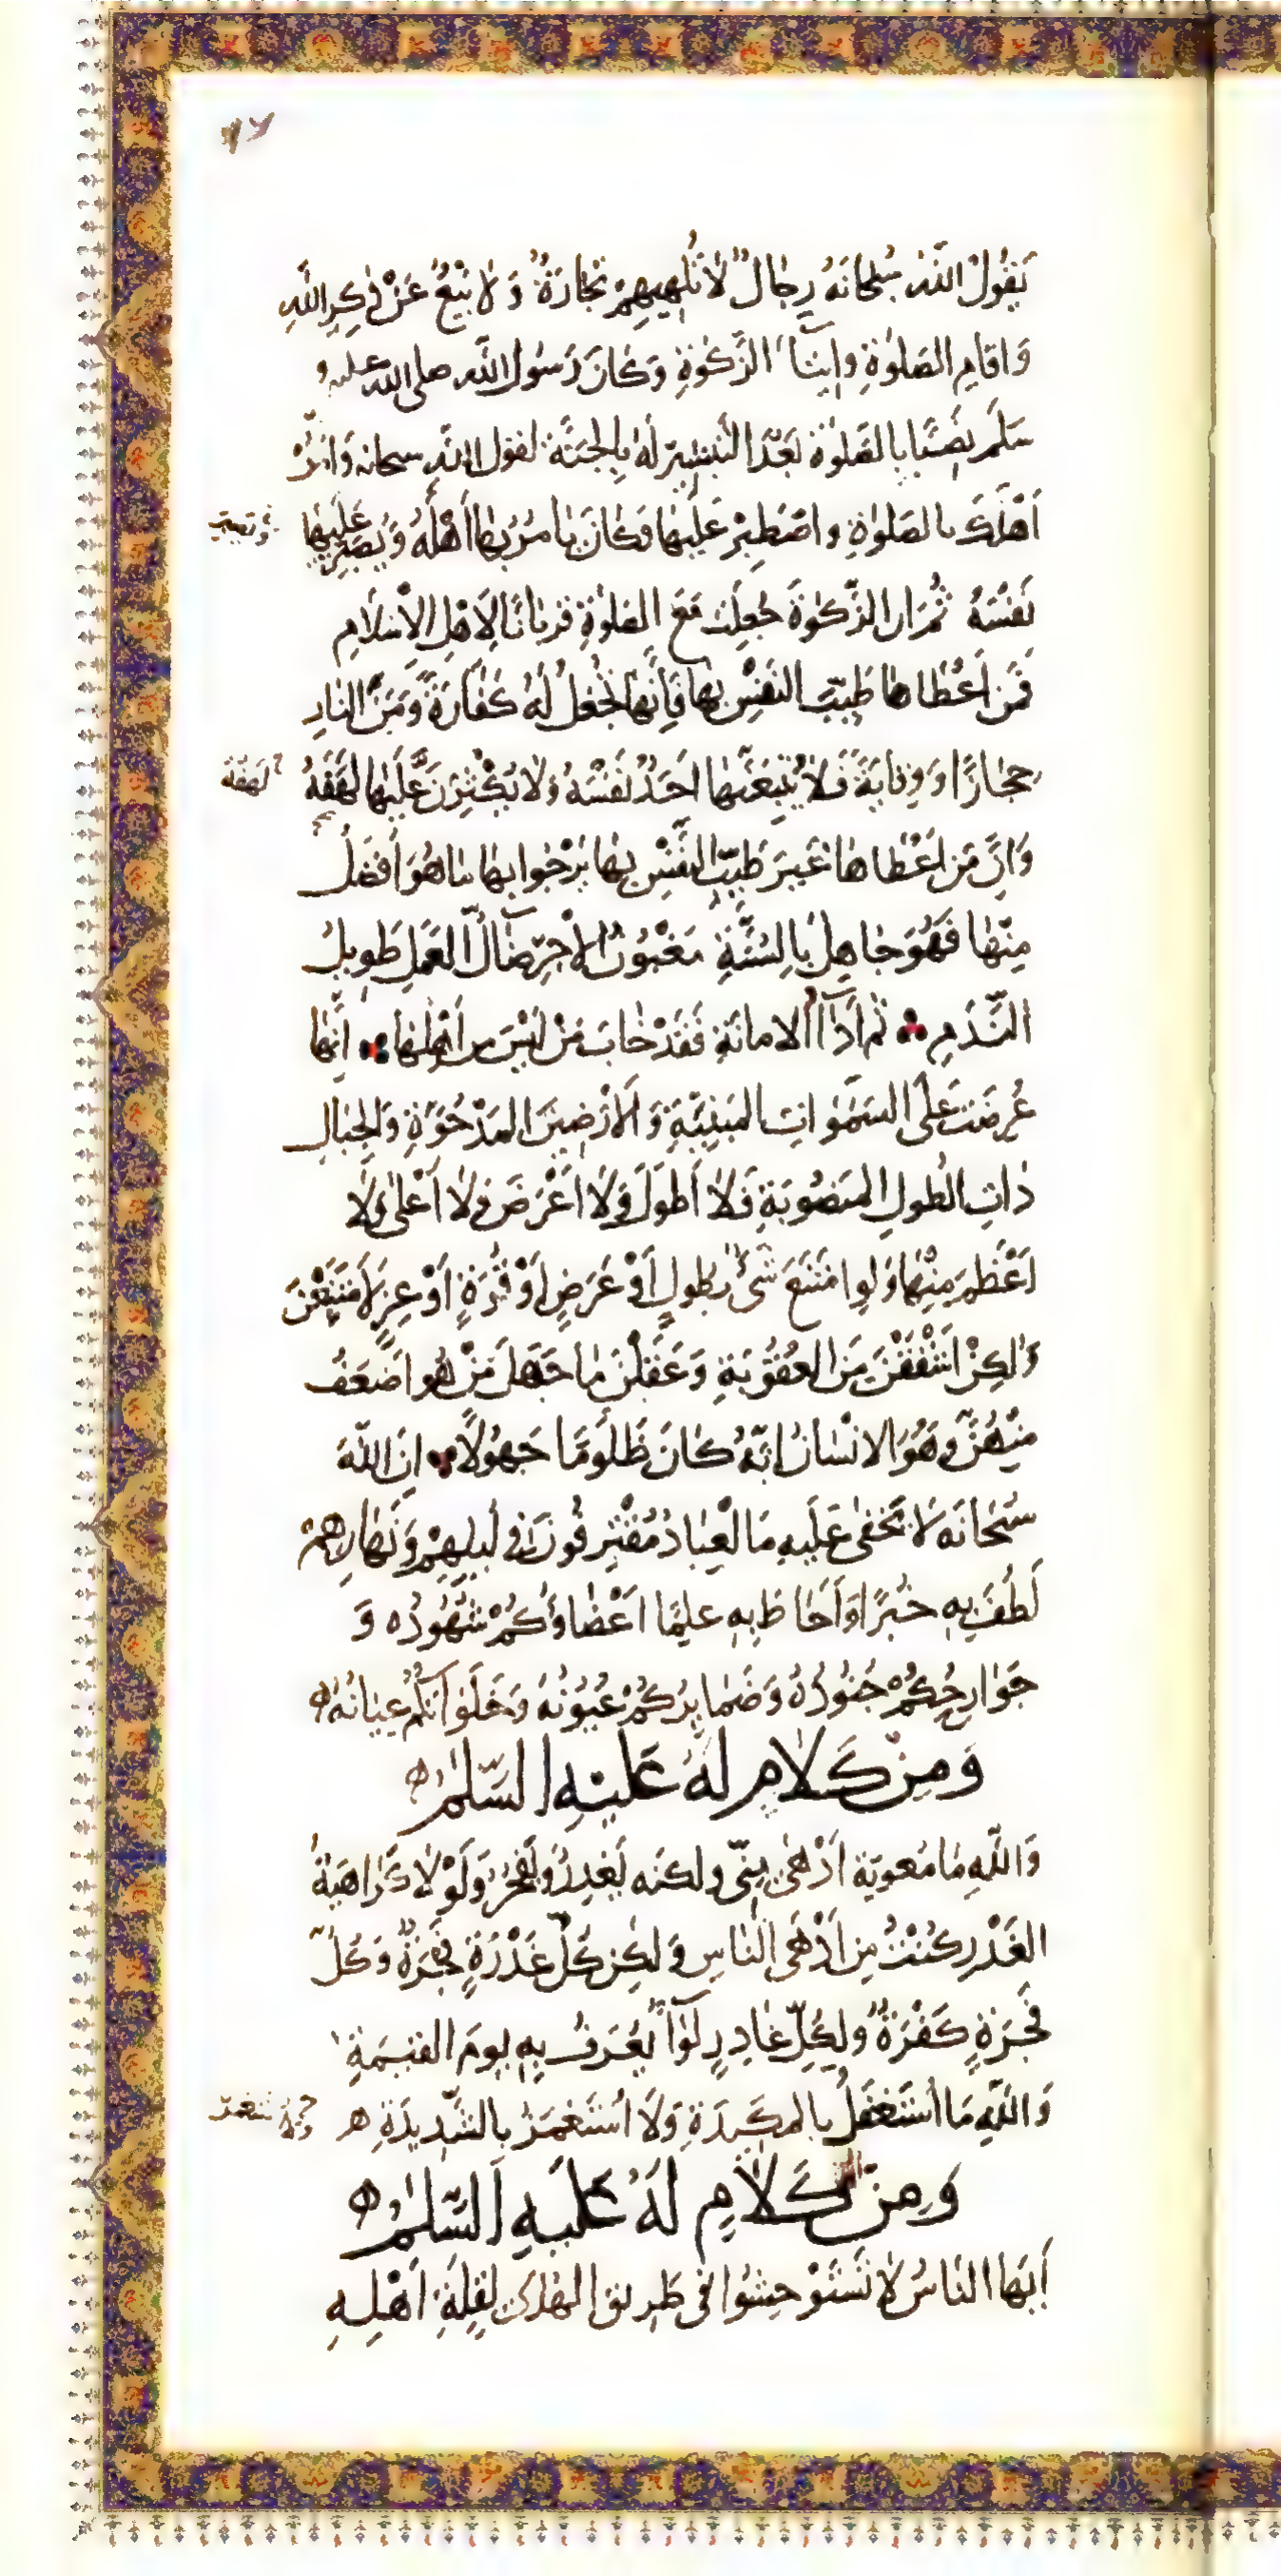 يَقُولُ اللّٰهُ سُبْحَانَهُ رِجَالٌ لَا تُلْهِيهِمْ تِجَارَةٌ وَلَا بَيْعٌ عَنْ ذِكْرِ اللّٰهِ
وَاقَامِ الصَلٰوةِ وَاِيتَآءِ الزَّكٰوةِ وَكَانَ رَسُولُ اللّٰه صلى الله عليه و
سَلَّمَ نَصِبًا بالصَّلٰوةِ بَعْدَ التَبْشِيرِ لَهُ بِالْجَنَّةِ لقول اللّٰهِ سبحانه وَامُرْ
اَهْلَكَ بالصَلٰوةِ واصْطَبِرْ عَلَيْهَا فَكَانَ يَامُرُ بِهَا اَهْلَهُ وَيُصَبِّرُ عَلَيْهَا
نَفْسَهُ ثُمَّ ان الزَّكٰوةَ جُعِلَت مَعَ الصَلٰوةِ قربَانًا لِاَهْلِ الْاِسْلَامِ
فَمَن اَعْطَاهَا طَيِّبَ النَفْسِ بِهَا فَاِنَّهَا تُجْعَلُ لَهُ كَفَّارَةً وَمِنَ النَارِ
حِجَازًا وَوِقَايَةً فَلَا يُتْبِعَنَّهَا اَحَدٌ نَفْسَهُ وَلَا يُكْثِرَنَّ عَلَيْهَا لَهَفَهُ
لهفة
وَانَّ مَن اَعْطَاهَا غَيرَ طَيِّبِ النَّفْسِ بِهَا يَرْجُوا بِهَا مَا هُوَ اَفْضَلُ
مِنْهَا فَهُوَ جَاهِلٌ بِالسُنَّةِ مَغْبُونُ الْاَجْرِ ضَآلُّ الْعَمَلِ طَوِيلُ
النَّدَمِ ثم اَدَآءُ الامانَةِ فَقَدْ خَابَ مَنْ لَيْسَ من اَهْلِهَا اِنَّهَا
عُرِضَت عَلَى السَمٰوَاتِ المَبْنِيَّةِ وَالْاَرَضِينَ المَدْحُوَّةِ وَالْجِبَالِ
ذَاتِ الطُولِ المَنصُوبَةِ فَلَا اَطْوَلَ وَلَا اَعْرَضَ وَلَا اَعْلَى وَلَا
اَعْظَمَ مِنْهَا وَلَوِ امْتَنَعَ شَىْءٌ بِطُولٍ اَوْ عَرْضٍ اَوْ قُوَّةٍ اَوْ عِزٍّ لَامْتَنَعْنَ
وَلٰكِنْ اَشْفَقْنَ مِنَ العُقُوبَةِ وَعَقَلْنَ مَا جَهِلَ مَنْ هُو اَضْعَفُ
مِنْهُنَّ وهُوَ الانْسَانُ اِنَّهُ كَانَ ظَلُومًا جَهُولًا اِنَّ اللّٰهَ
سُبْحَانَه لَا يَخْفَى عَلَيهِ مَا الْعِبَادُ مُقْتَرِفُونَ فِى لَيْلِهِمْ وَنَهَارِهِمْ
لَطُفَ بِهِ خُبْرًا وَاَحَاطَ بِهِ عِلْمًا اَعْضَاؤُكُمْ شُهُودُه وَ
جَوَارِحُكُمْ جُنُودُهُ وَضَمَايِرُكُمْ عُيُونُهُ وَخَلَوَاتُكُمْ عِيَانُهُ
وَمِنْ كَلَامٍ لَهُ عَلَيْهِ السَّلٰمُ
وَاللّٰهِ مَا مُعوِيَة اَدْهَى مِنِّى ولكنه يَغْدِرُ وَيَفْجُرُ وَلَوْلَا كَرَاهِيَةُ
الغَدْرِ كُنْتُ مِن اَدْهَى النَاسِ وَلٰكِن كُلُّ غَدْرَةٍ فَجْرَةٌ وَكُلُّ
فَجْرَةٍ كَفْرَةٌ ولِكُلِّ غَادِرٍ لِوَآءٌ يُعْرَفُ بِهِ يومَ القيٰمَةِ
وَاللّٰهِ مَا اُسْتَغْفَلُ بالمَكِيدَةِ وَلَا اُسْتَغْمَزُ بالشَّدِيدَةِ
وَمِنْ كَلَامٍ لَهُ عَلَيهِ السَّلٰمُ
اَيّهَا النَاسُ لَا تَسْتَوْحِشُوا فى طَرِيقِ الهُدَى لِقِلَّةِ اَهْلِهِ